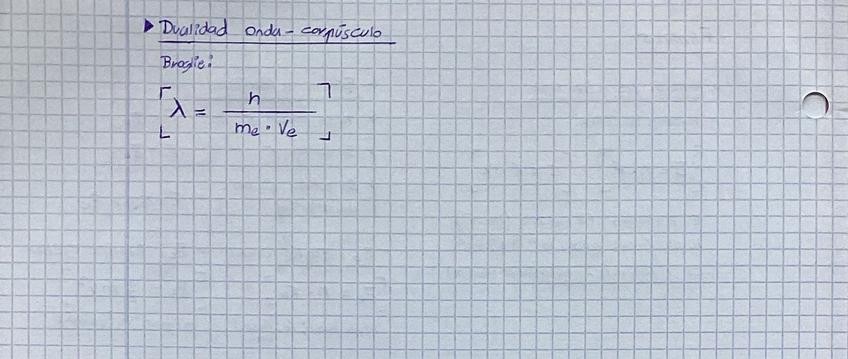 ▶ Dualidad onda-corpúsculo
Broglie:
λ = h / me · Ve